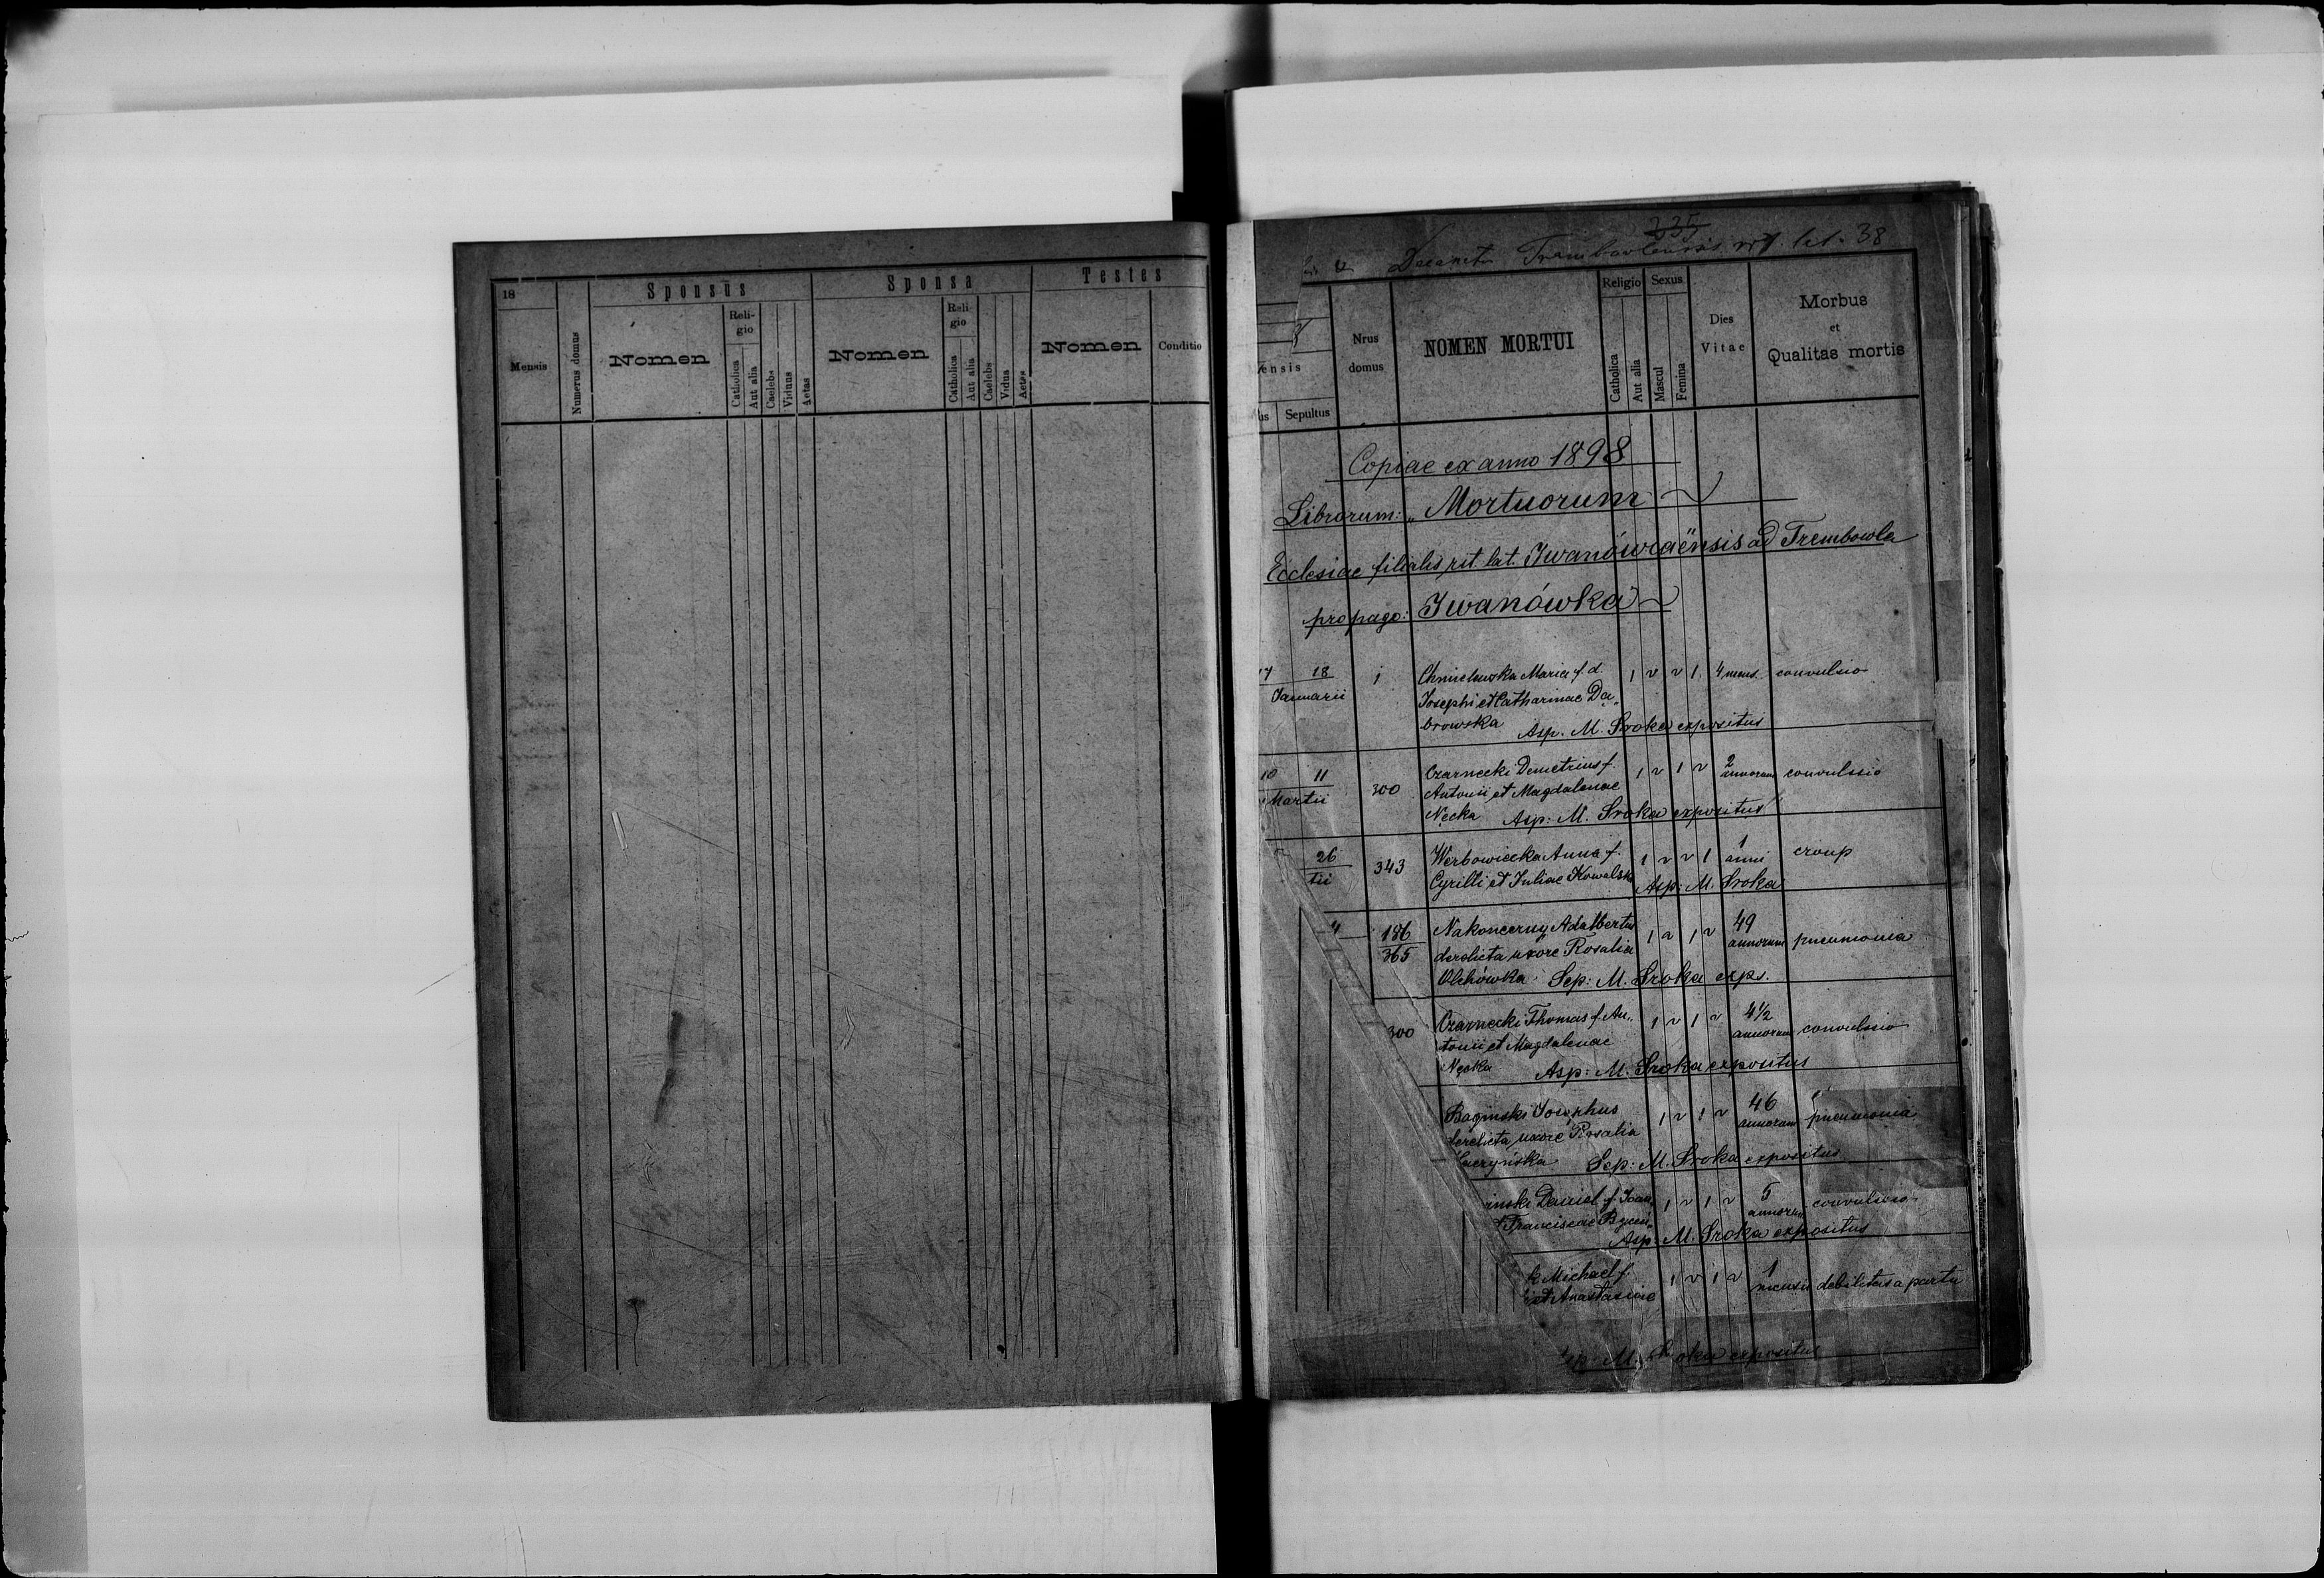 18
Sponsus
Sponsa
Testes
Mensis
Numerus domus
Nomen
Reli-
gio
Catholica
Aut alia
Caelebs
Viduus
Aetas
Nomen
Reli-
gio
Catholica
Aut alia
Caelebs
Vidua
Aetas
Nomen
Conditio
335
Decanatu Trembowlensis rit. lat. 38
8
ensis
us
Sepultus
Nrus
domus
NOMEN MORTUI
Religio
Catholica
Aut alia
Sexus
Mascul
Femina
Dies
Vitae
Morbus
et
Qualitas mortis
Copiae ex anno 1898
Librorum: „Mortuorum
Ecclesiae filialis rit. lat. Iwanówcaënsis ad Trembowla
pro pago: Iwanówka
17 18 1 Chmielewska Maria f. d 1 v v 1 4 mens. convulsio
Januarii Josephi et Catharinae Dą„
browska Asp. M. Sroka expositus
10 11 300 Czarnecki Demetrius f. 1 v 1 v 2 annorum convulssio
Martii Antonii et Magdalenae
Nęcka Asp: M. Sroka expositus
26 343 Werbowiecka Anna f. 1 v v 1 1 anni croup
tii Cyrilli et Juliae Kowalsk Asp: M. Sroka
4 186 Nakonceczny Adalbertus 1 v 1 v 49 annorum pneumonia
365 derelicta uxore Rosalia
Olchówka Sep: M. Sroka exps.
300 Czarnecki Thomas f. An„ 1 v 1 v 4½ annorum convulssio
tonii et Magdalenae
Nęcka Asp: M. Sroka expositus
Baginski Josephus 1 v 1 v 46 annorum pneumonia
derelicta uxore Rosalia
Sep: M. Sroka expositus
inski Daniel f. Joan 1 v 1 v 5 annorum convulsio
Franciscae
Asp: M. Sroka expositus
k Michael f. 1 v 1 v 1 mensis debilitas a partu
et Anastasiae
Sep: M. Sroka expositus